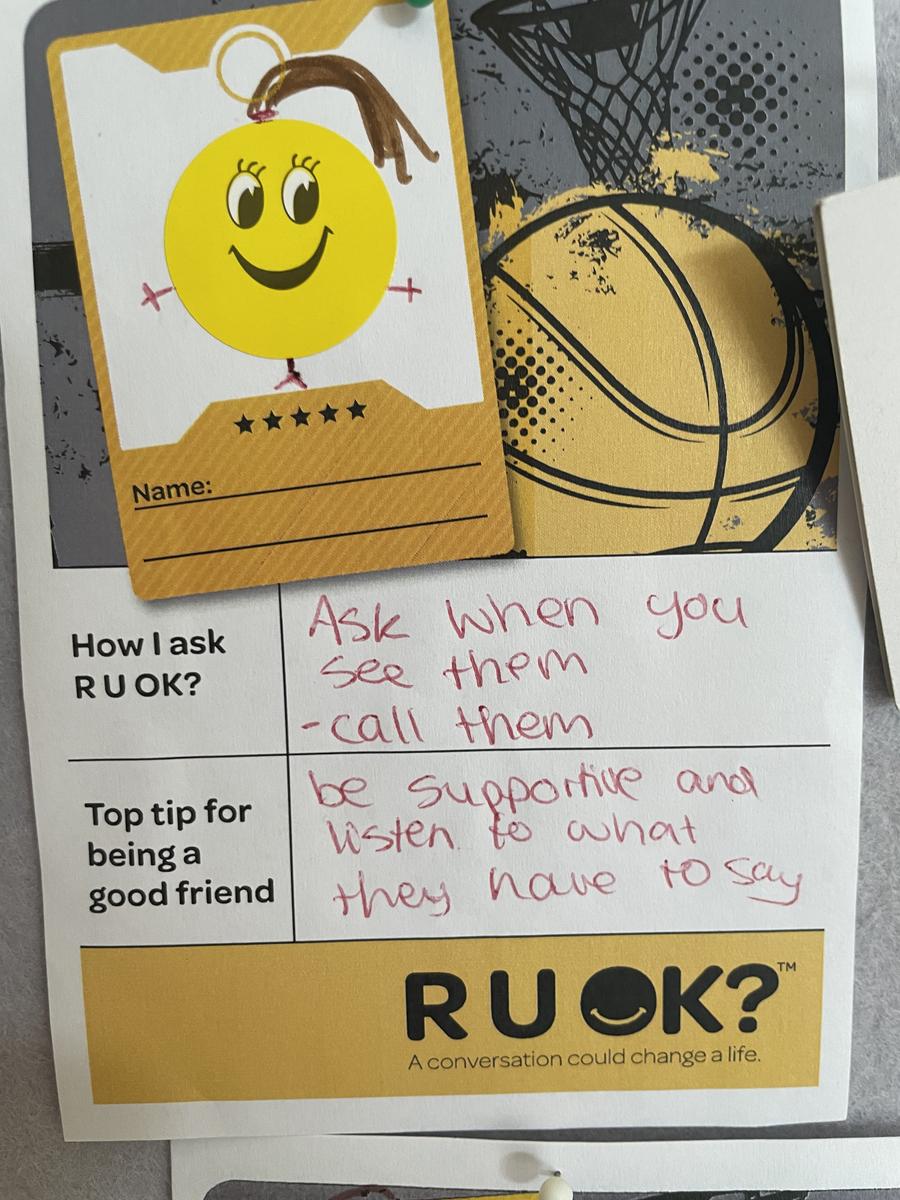 Name:
How I ask
R U OK?
Ask when you
see them
-call them
Top tip for
being a
good friend
be supportive and
listen to what
they have to say
R U OK?™
A conversation could change a life.